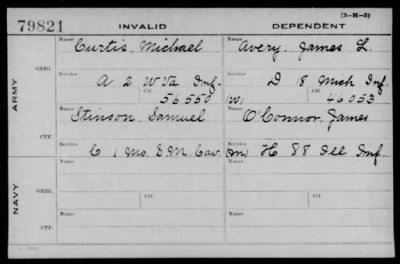 (3-H-3)
79821 INVALID DEPENDENT
Name Curtis, Michael Name Avery, James L.
ARMY
ORIG. Service A 2 W Va Inf. Service D 8 Mich Inf.
Ctf. 56550 (W) Ctf. 46053
Name Stinson, Samuel Name O'Connor, James
CTF. Service C 1 Mo. S.M. Cav. Service (M) H 88 Ill Inf.
NAVY
Name Name
ORIG. Service Ctf. Service Ctf.
Name Name
CTF. Service Service